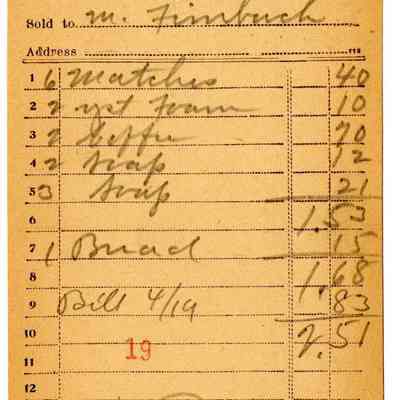 Sold to M. Fimbach
Address
1 6 Matches 40
2 2 yst Foam 10
3 2 Coffee 70
4 2 Soap 12
5 3 Soap 21
6 1.53
7 1 Bread 15
8 1.68
9 Bill 4/19 83
10 2.51
19
11
12